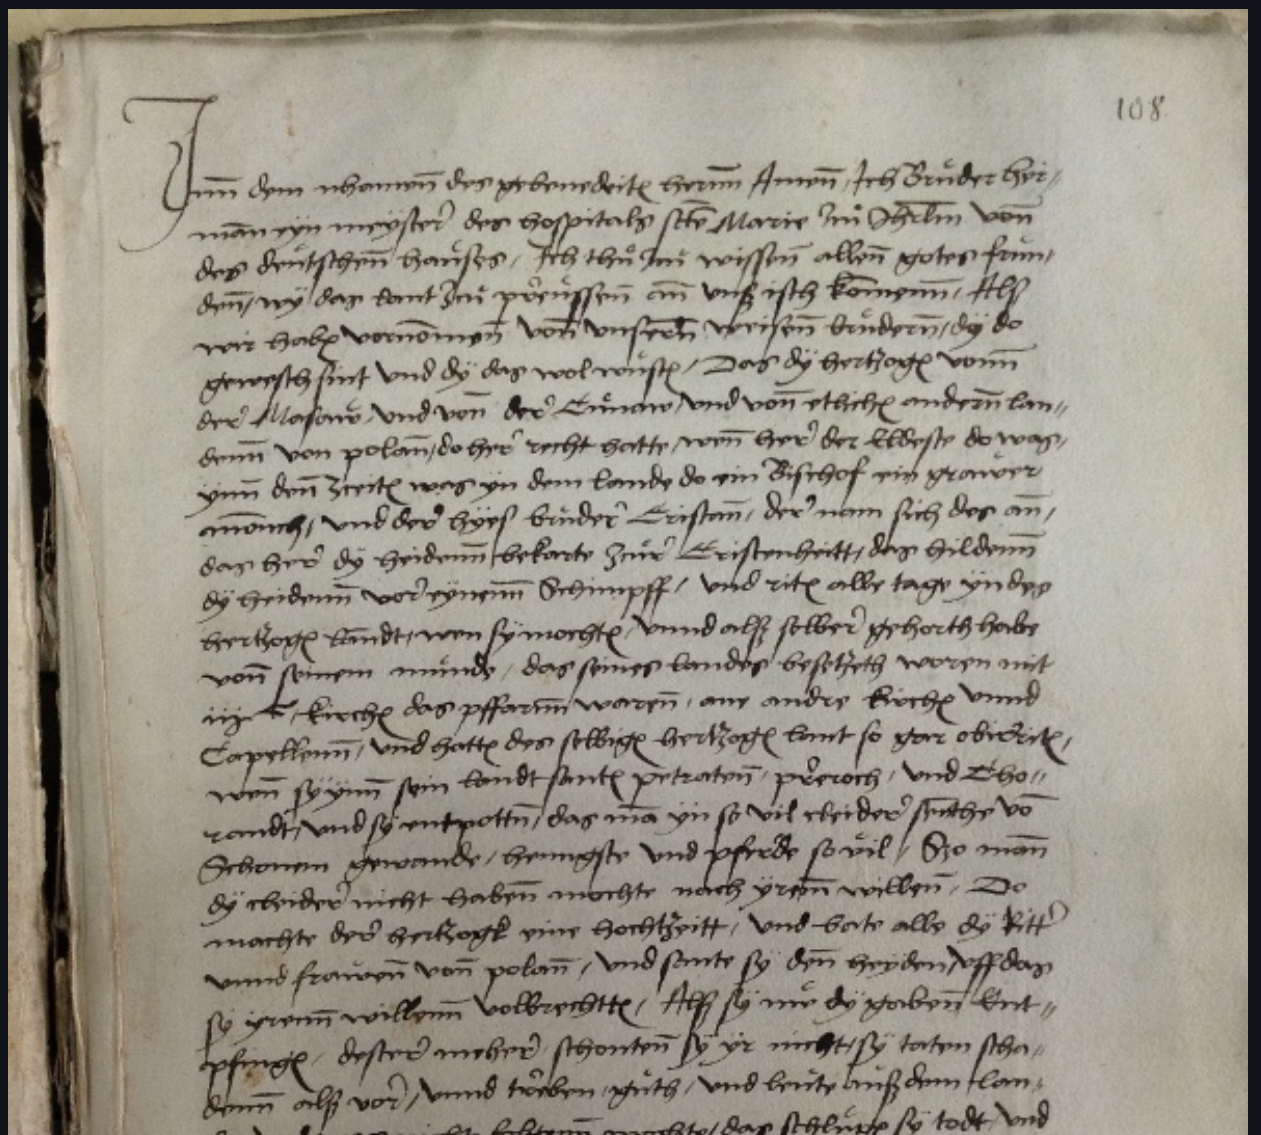 108
Inn dem nhamenn des gebenedeiten hernn Amenn, Ich Brůder her-
man eyn meyster des hospitals scte Marie zu Jhrlm vonn
des deutschenn hauses, Ich thu zu wissenn allenn gotes frun-
denn, wy das lant zcu preussenn ann unß isth komenn, Alß
wir haben vornomen vonn unsernn weisenn brudernn, dy do
gewesth sint und dy das wol wusten, Das dy hertzogen vonn
der Masaw, und vonn der Cuiaw, und vonn etlichen andernn lan-
denn von polann, do her recht hatte, wenn her der Eldeste do was,
ynn denn zceiten was yn dem lande do ein Bischof ein grawer
monch, und der hyes bruder Cristann, der nam sich des an,
das her dy heidenn bekarte zcur Cristenheitt, das hildenn
dy heidenn vor eynenn Schimpff, und riten alle tage yn des
hertzogen landt, wen sy mochten, unnd alß selber gehorth habe
vonn seinem munde, das seines landes besetzeth woren mit
kirchen das pffarnn warenn, ane andre kirchen unnd
Capellenn, und hatten des selbigen hertzogen lant so gar obirriten,
wenn sy ynn sein landt santen petratenn, preroch, und Cho-
randt, und sy entpottn, das ma yn so vil cleider senthe vo
Schonem gewande, henngste und pferde so vil, Szo mann
dy cleider nicht habenn mochte nach yrenn willenn, Do
machte der hertzogk eine hochtzeitt, und bate alle dy Ritter
unnd frawenn vonn polann, und sante sy denn heyden, uff das
sy yrenn willenn volbrechtten, Alß sy me dy gabenn Ent-
pfingen, dester meher schontenn sy yr nicht, sy taten scha-
denn alß vor, unnd treben guth, und leute auß dem lan-
mochte, das schlugen sy todt, und